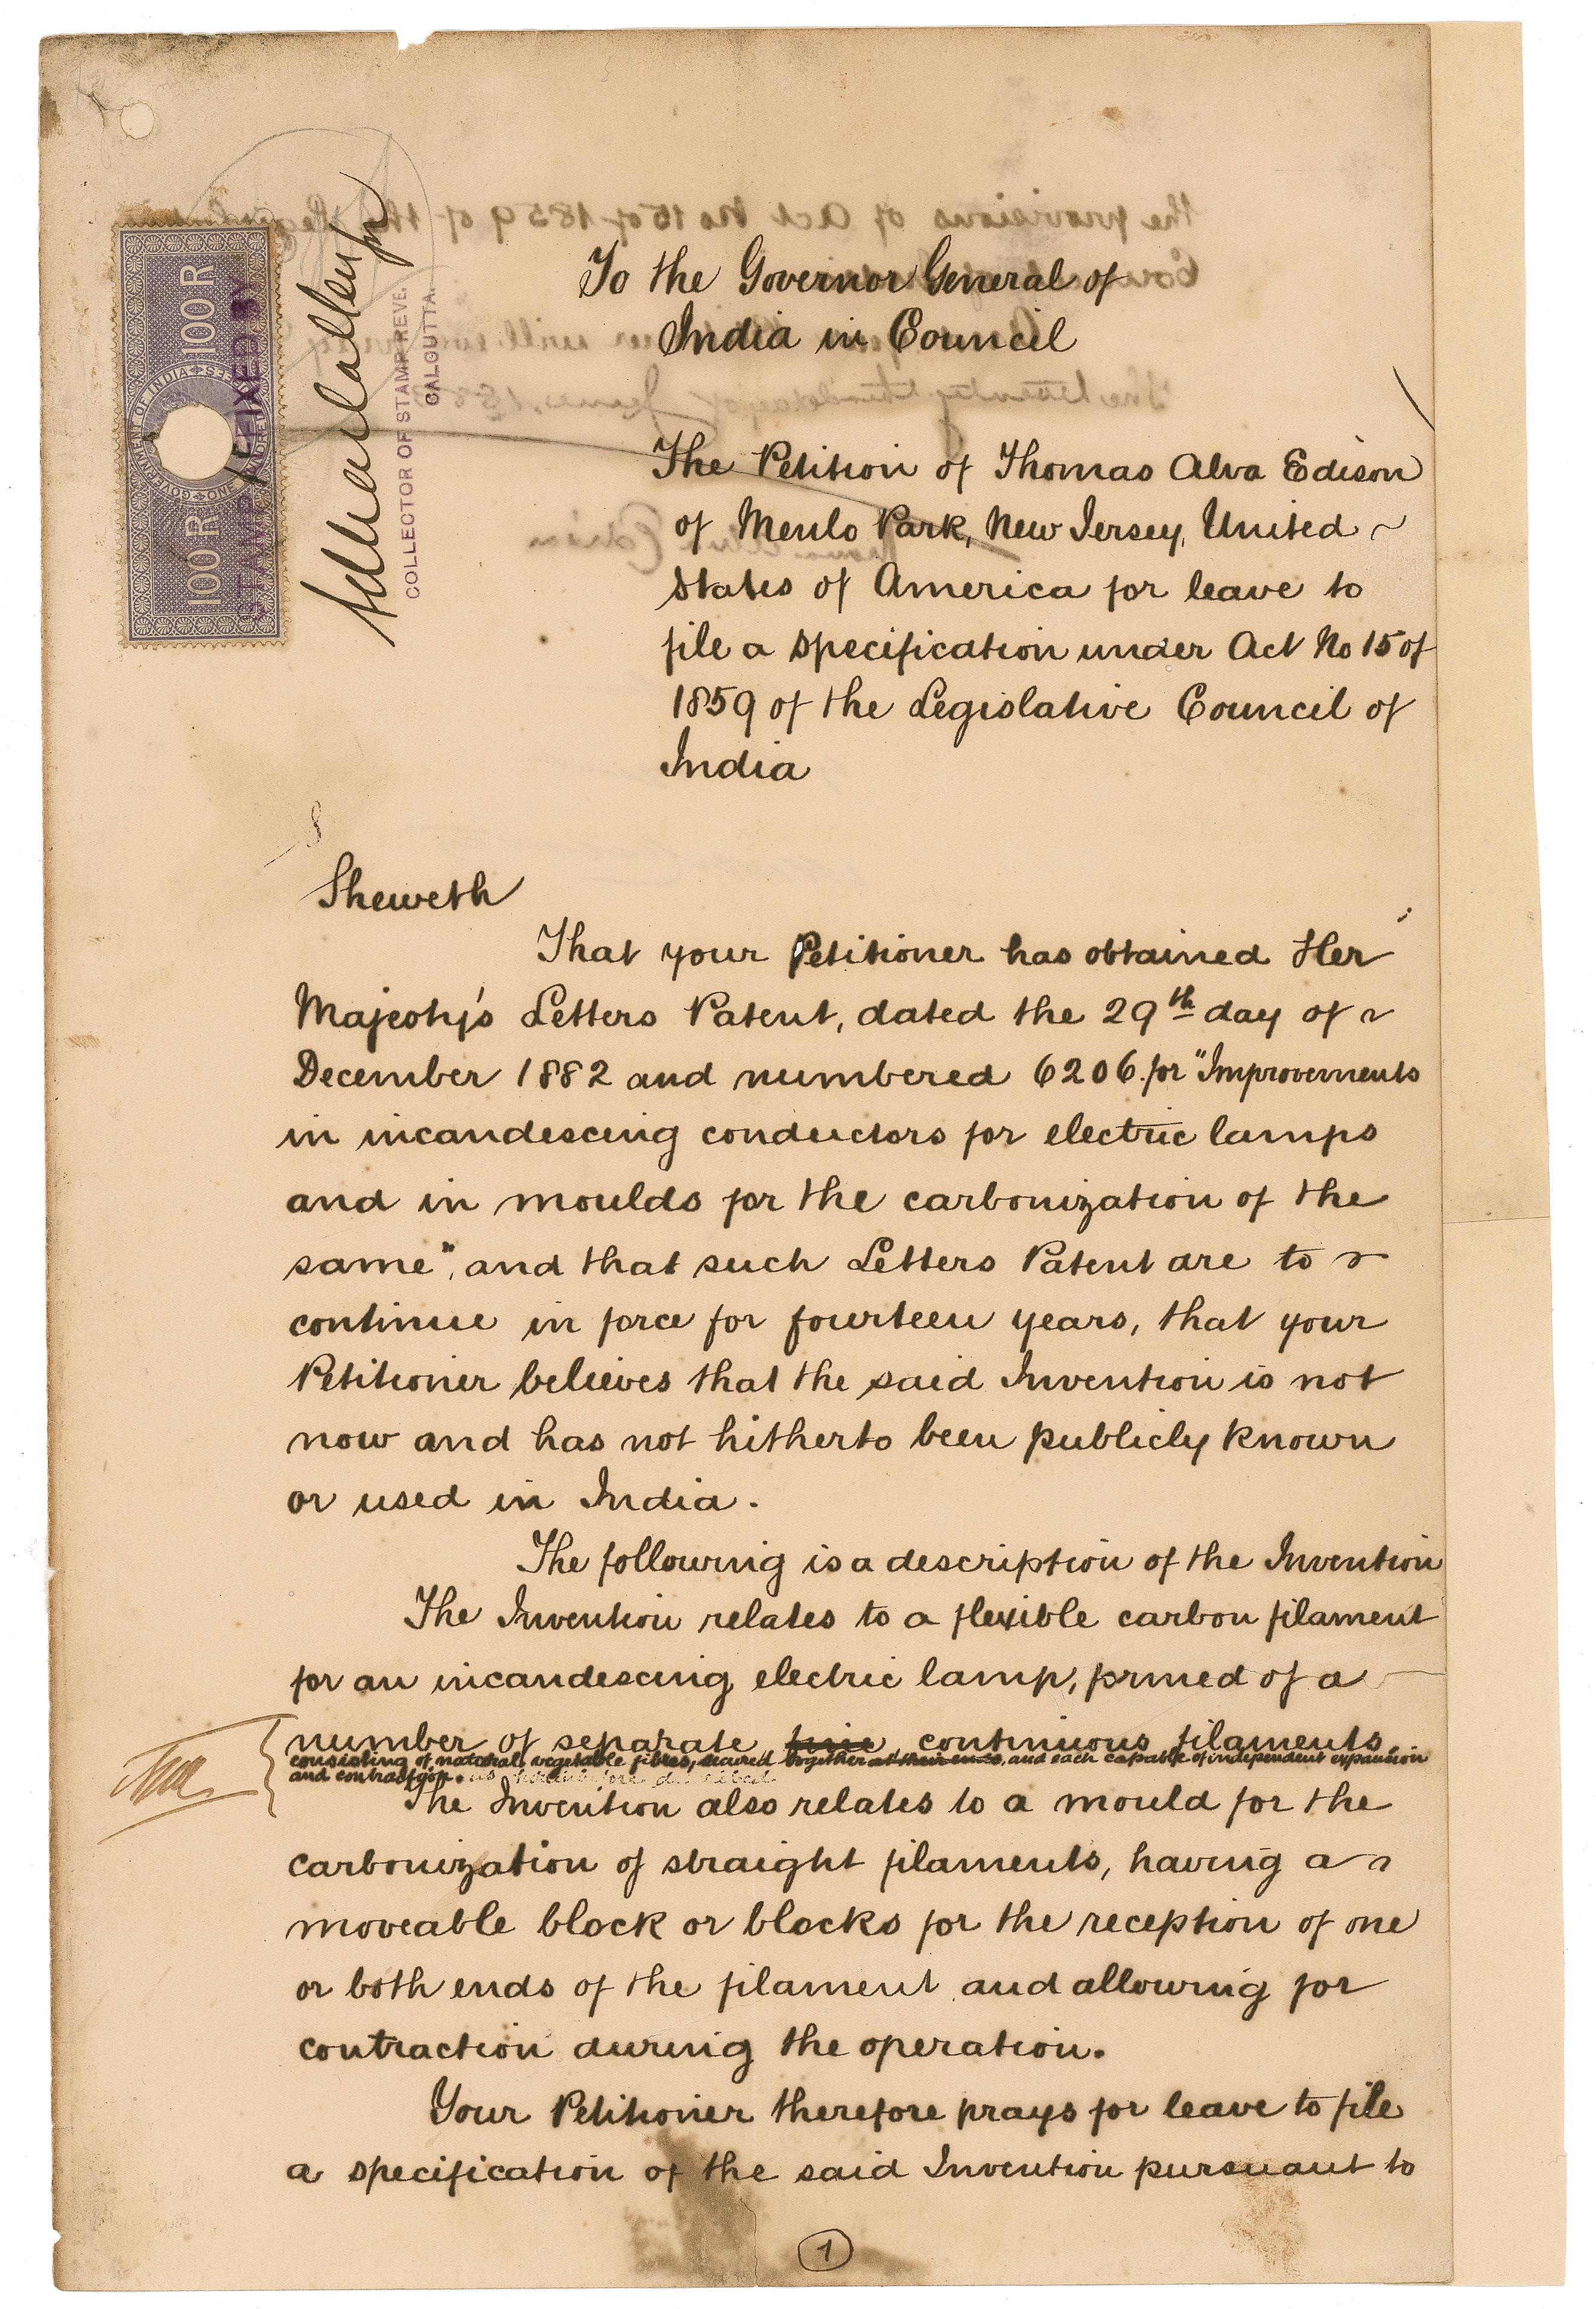 To the Governor General of
India in Council
The Petition of Thomas Alva Edison
of Menlo Park, New Jersey, United ~
States of America for leave to
file a specification under Act No 15 of
1859 of the Legislative Council of
India
100 R
100 R
GOVERNMENT OF INDIA
ONE HUNDRED RUPEES
STAMP AFFIXED BY
COLLECTOR OF STAMP REVE.
CALCUTTA.
Sheweth
That your Petitioner has obtained Her
Majesty's Letters Patent, dated the 29th day of ~
December 1882 and numbered 6206. for "Improvements
in incandescing conductors for electric lamps
and in moulds for the carbonization of the
same", and that such Letters Patent are to ~
continue in force for fourteen years, that your
Petitioner believes that the said Invention is not
now and has not hitherto been publicly known
or used in India.
The following is a description of the Invention
The Invention relates to a flexible carbon filament
for an incandescing electric lamp, formed of a
number of separate continuous filaments,
consisting of natural vegetable fibres, secured together at their ends, and each capable of independent expansion
and contraction.
The Invention also relates to a mould for the
carbonization of straight filaments, having a ~
moveable block or blocks for the reception of one
or both ends of the filament and allowing for
contraction during the operation.
Your Petitioner therefore prays for leave to file
a specification of the said Invention pursuant to
1